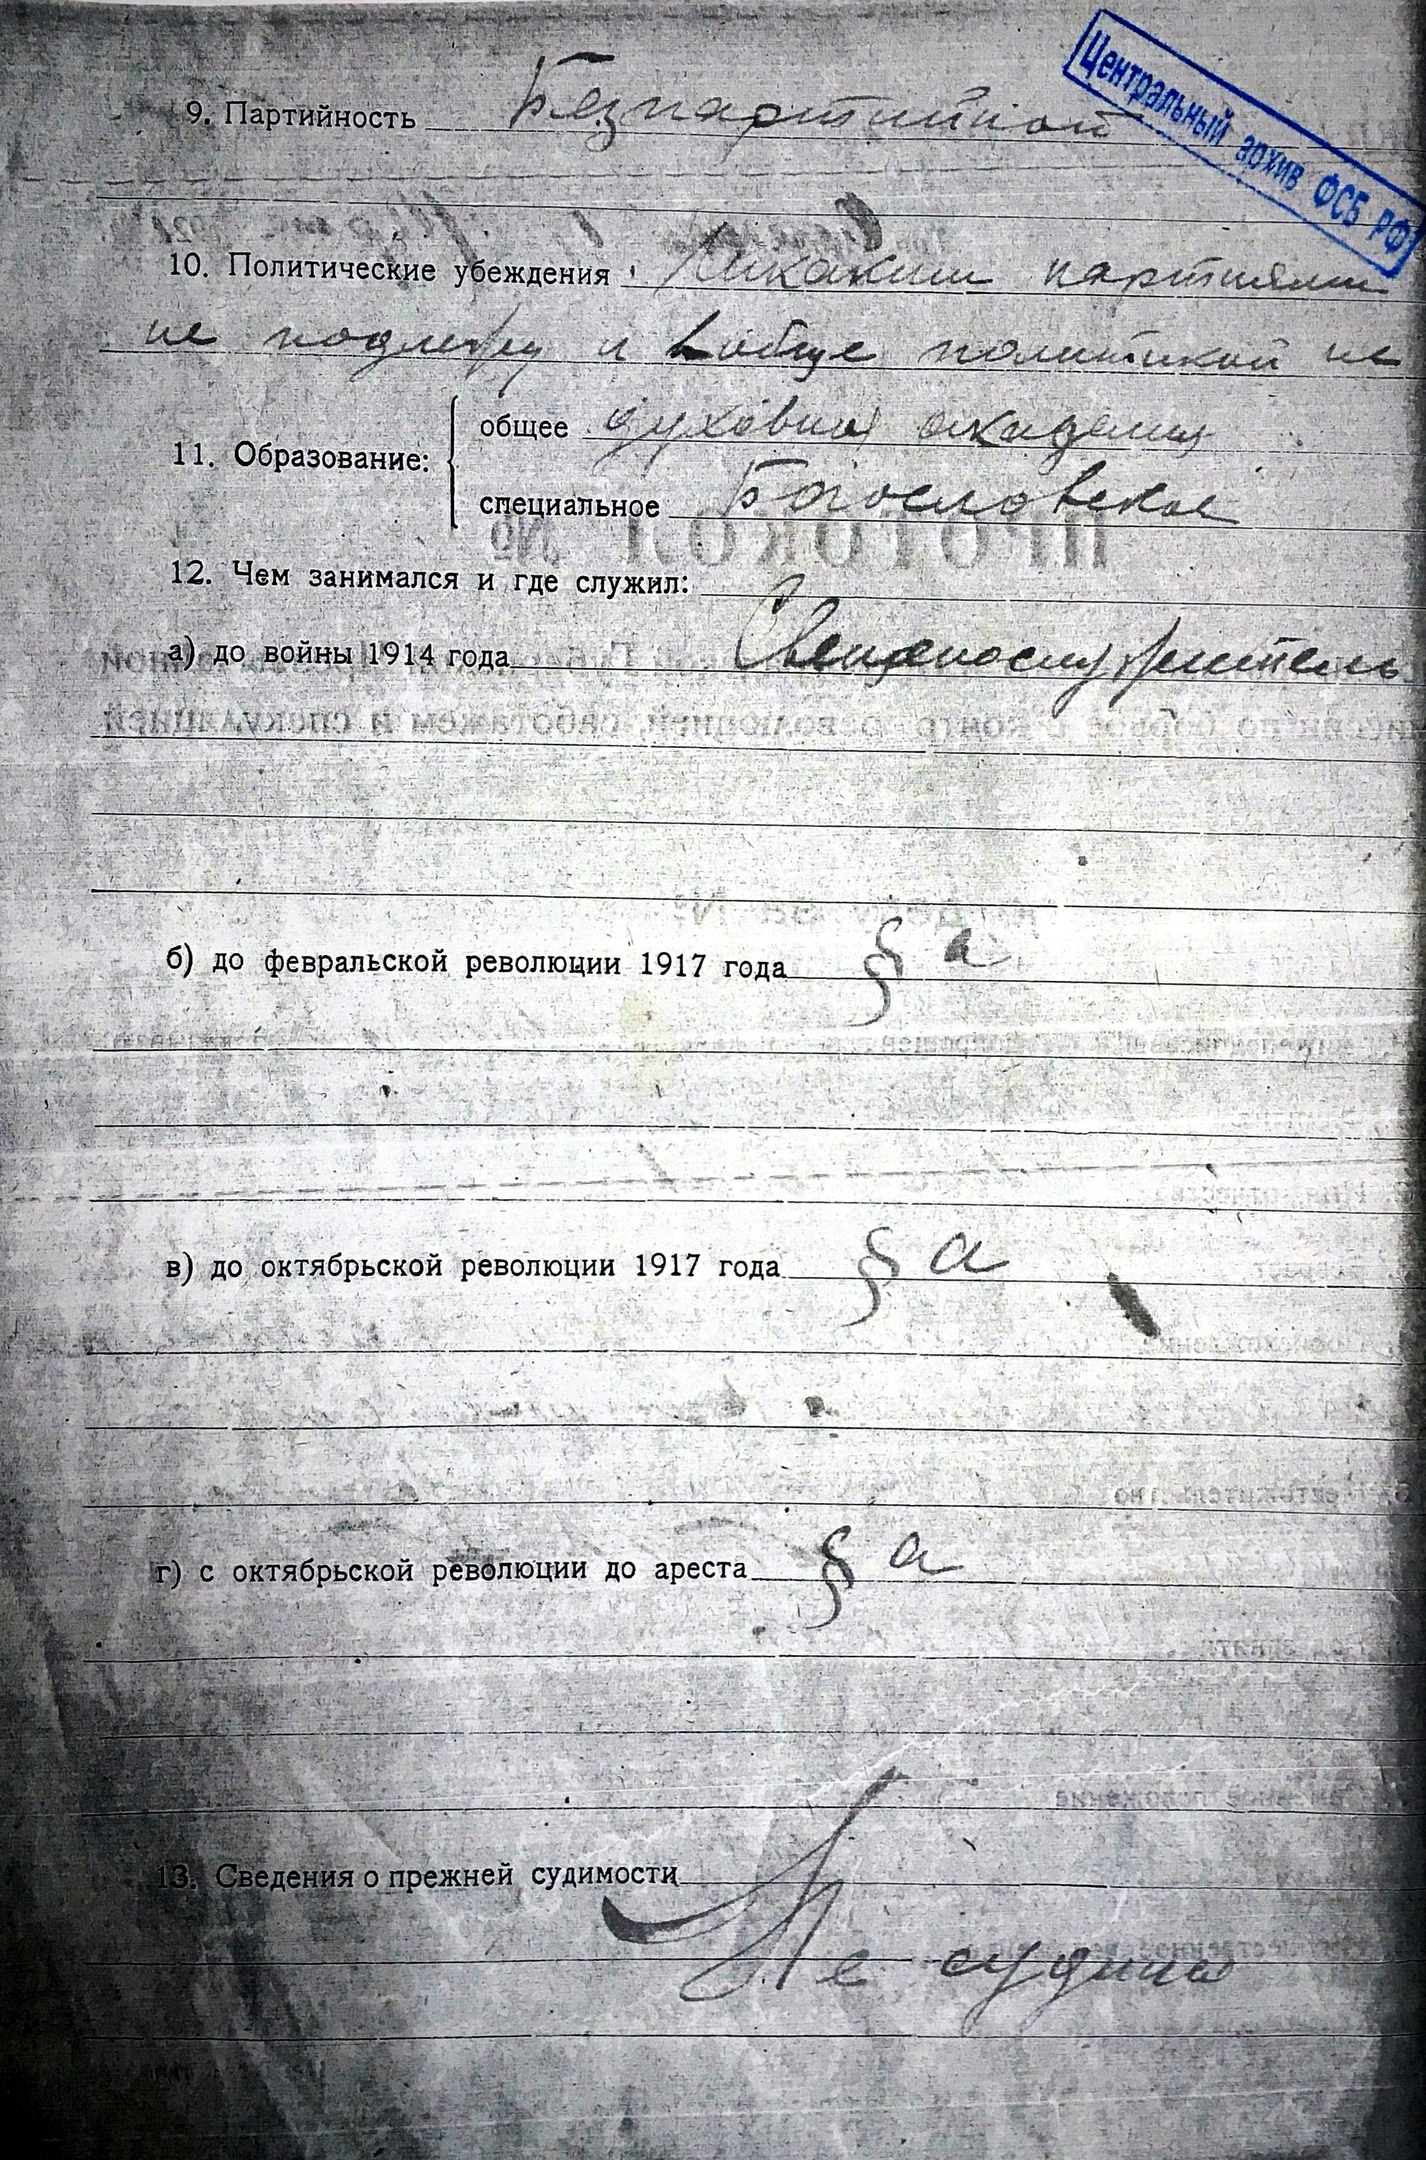 Центральный архив ФСБ РФ
9. Партийность Безпартийной
10. Политические убеждения Никакими партиями
не подлежу и вобще политикой не
11. Образование:
общее духовная академия
специальное Богословское
12. Чем занимался и где служил:
а) до войны 1914 года Священослужитель
б) до февральской революции 1917 года § а
в) до октябрьской революции 1917 года § а
г) с октябрьской революции до ареста § а
13. Сведения о прежней судимости
Не судим